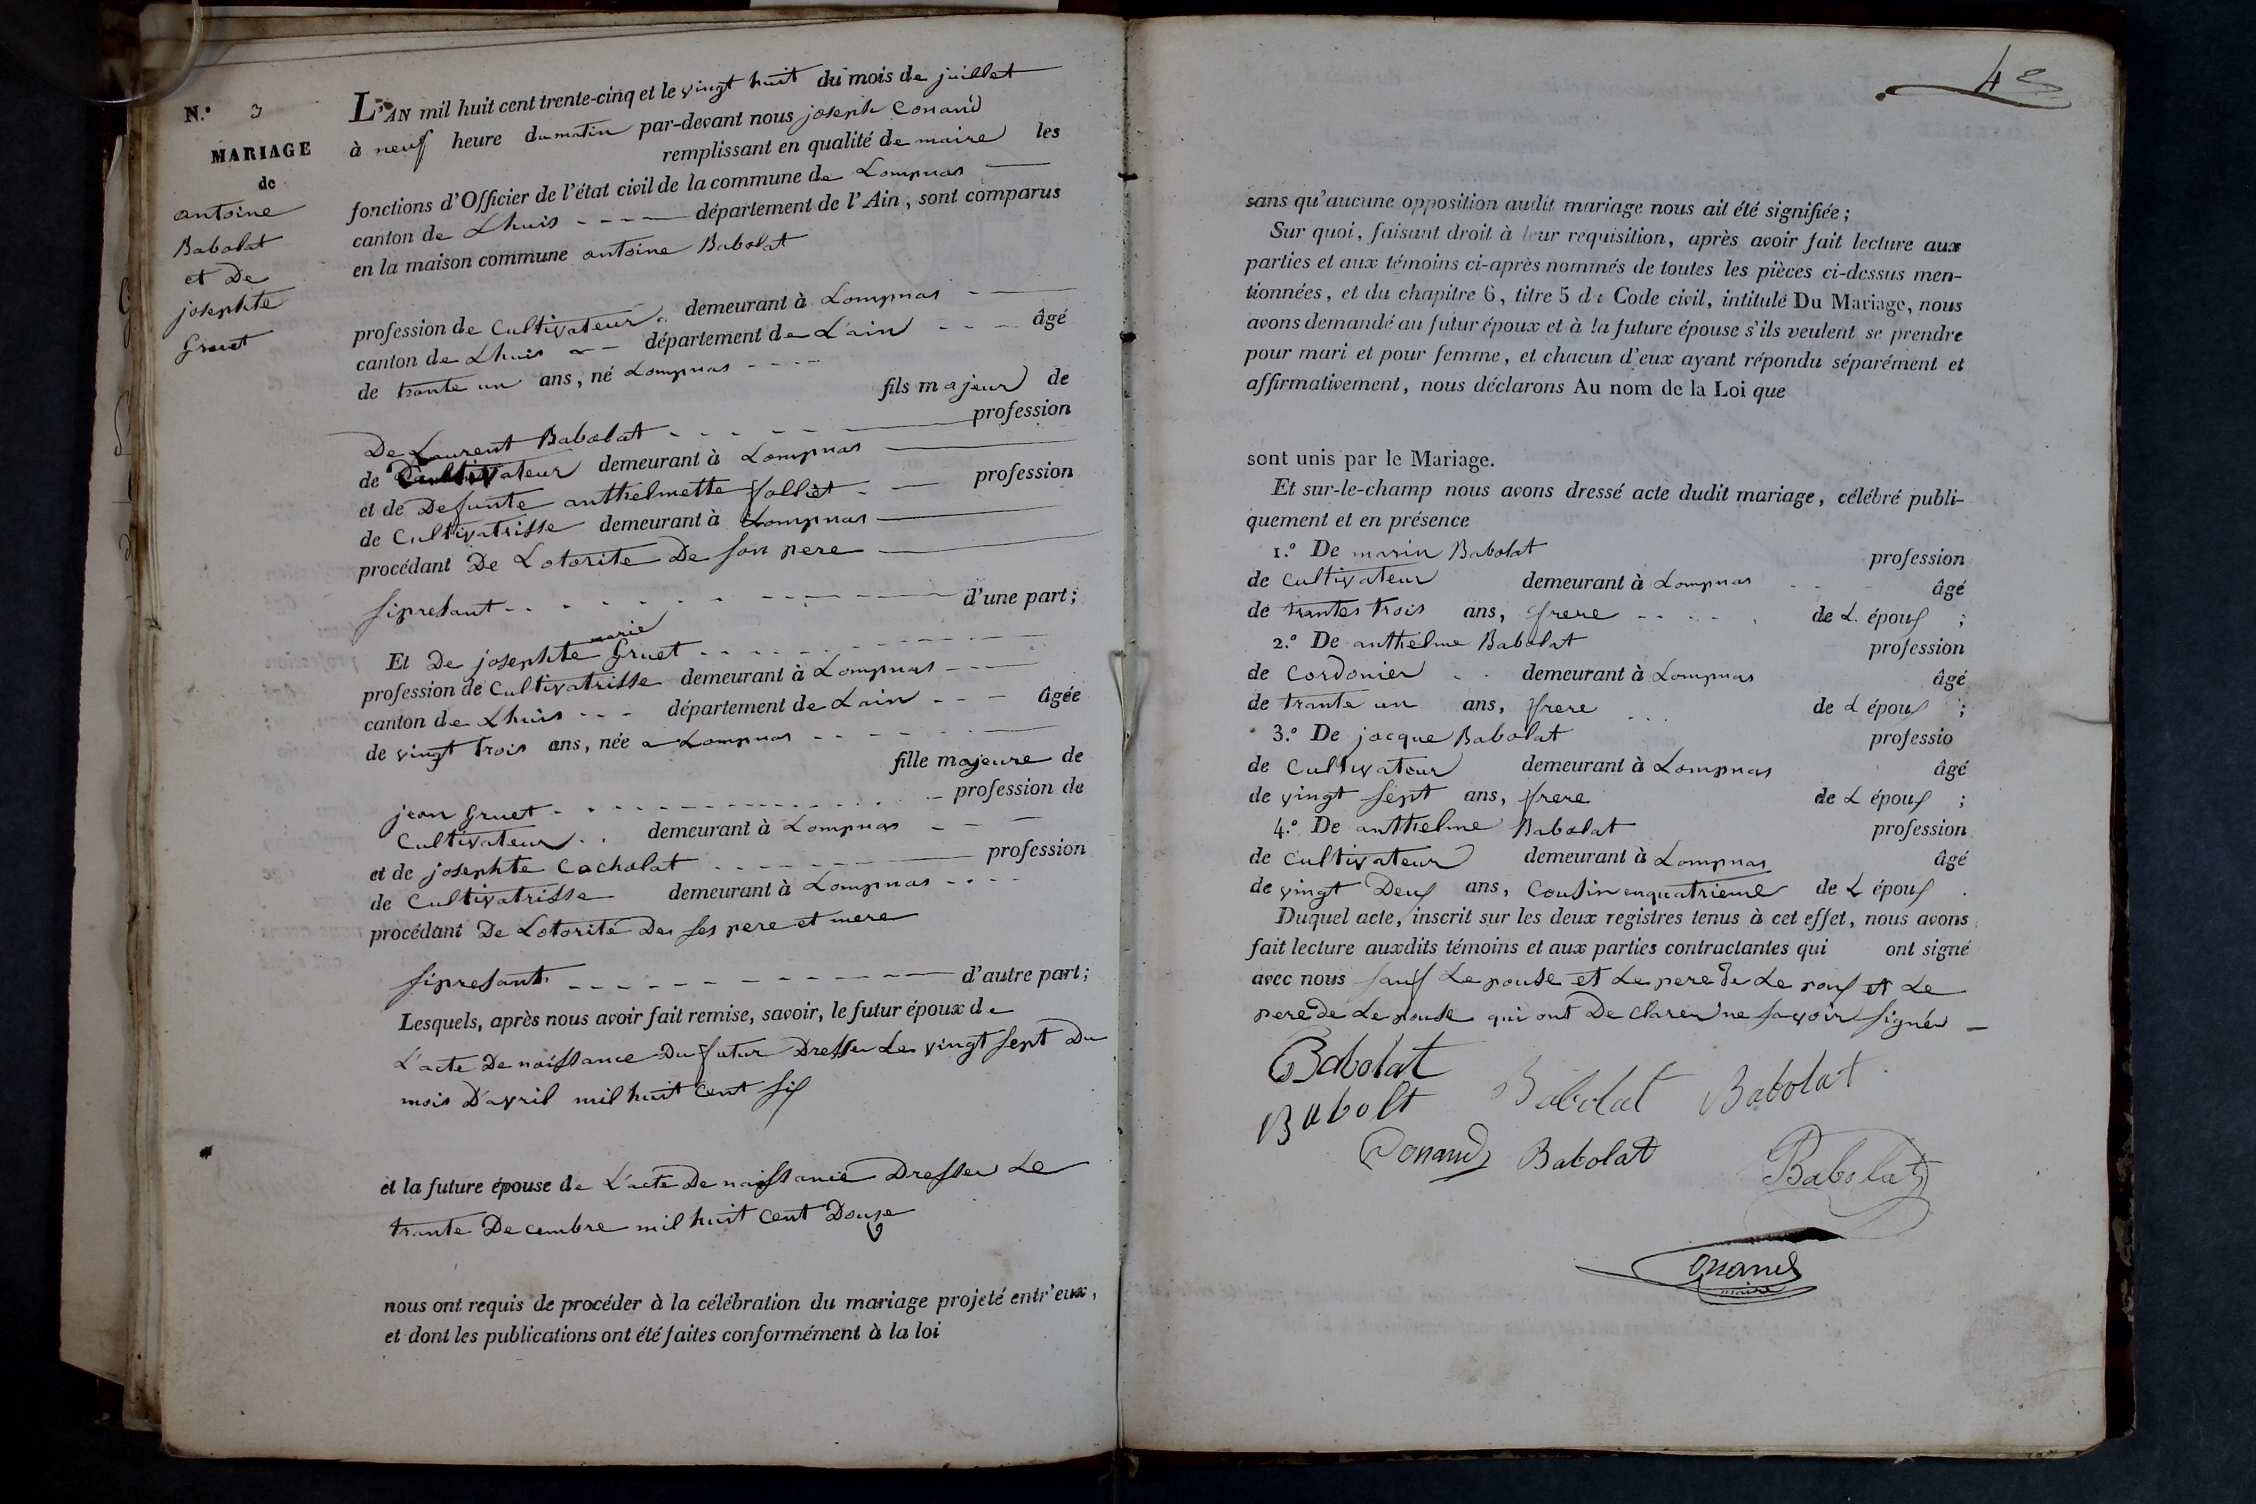 N.° 3
MARIAGE
de
antoine
Babolat
et De
josephte
Gruet
L'AN mil huit cent trente-cinq et le vingt huit du mois de juillet
à neuf heure du matin par-devant nous joseph Conand
remplissant en qualité de maire les
fonctions d'Officier de l'état civil de la commune de Lompnas
canton de Lhuis département de l'Ain, sont comparus
en la maison commune antoine Babolat
profession de Cultivateur demeurant à Lompnas
canton de Lhuis département de L'ain âgé
de trante un ans, né Lompnas
fils majeur de
De Laurent Babolat profession
de Cultivateur demeurant à Lompnas
et de Defunte anthelmette folliet profession
de Cultivatrisse demeurant à Lompnas
procédant De Lotorite De son pere
sipresant d'une part;
marie
Et De josephte Gruet
profession de Cultivatrisse demeurant à Lompnas
canton de Lhuis département de Lain âgée
de vingt trois ans, née a Lompnas
fille majeure de
jean Gruet profession de
Cultivateur demeurant à Lompnas
et de josephte Cacholat profession
de Cultivatrisse demeurant à Lompnas
procédant De Lotorité De ses pere et mere
sipresant d'autre part;
Lesquels, après nous avoir fait remise, savoir, le futur époux de
L'acte De naissance Du futur Dresser Le vingt sept Du
mois D'avril mil huit Cent six
et la future épouse de L'acte De naissance Dresser Le
trante Decembre mil huit Cent Douze
nous ont requis de procéder à la célébration du mariage projeté entr'eux,
et dont les publications ont été faites conformément à la loi
4e
sans qu'aucune opposition audit mariage nous ait été signifiée;
Sur quoi, faisant droit à leur requisition, après avoir fait lecture aux
parties et aux témoins ci-après nommés de toutes les pièces ci-dessus men-
tionnées, et du chapitre 6, titre 5 du Code civil, intitulé Du Mariage, nous
avons demandé au futur époux et à la future épouse s'ils veulent se prendre
pour mari et pour femme, et chacun d'eux ayant répondu séparément et
affirmativement, nous déclarons Au nom de la Loi que
sont unis par le Mariage.
Et sur-le-champ nous avons dressé acte dudit mariage, célébré publi-
quement et en présence
1.° De marin Babolat profession
de Cultivateur demeurant à Lompnas âgé
de trantes trois ans, frere de L. époux ;
2.° De anthelme Babolat profession
de Cordonier demeurant à Lompnas âgé
de trante un ans, frere de L époux ;
3.° De jacque Babolat professio
de Cultivateur demeurant à Lompnas âgé
de vingt sept ans, frere de L époux ;
4.° De anthelme Babolat profession
de Cultivateur demeurant à Lompnas âgé
de vingt Deux ans, Cousin enquatrieme de L époux .
Duquel acte, inscrit sur les deux registres tenus à cet effet, nous avons
fait lecture auxdits témoins et aux parties contractantes qui ont signé
avec nous sauf Lepouse et Le pere de Le poux et Le
pere de Lepouse qui ont De clarer ne savoir signér
Babolat
Babolt Babolat Babolat
Conand Babolat
Babolat
Conand
maire